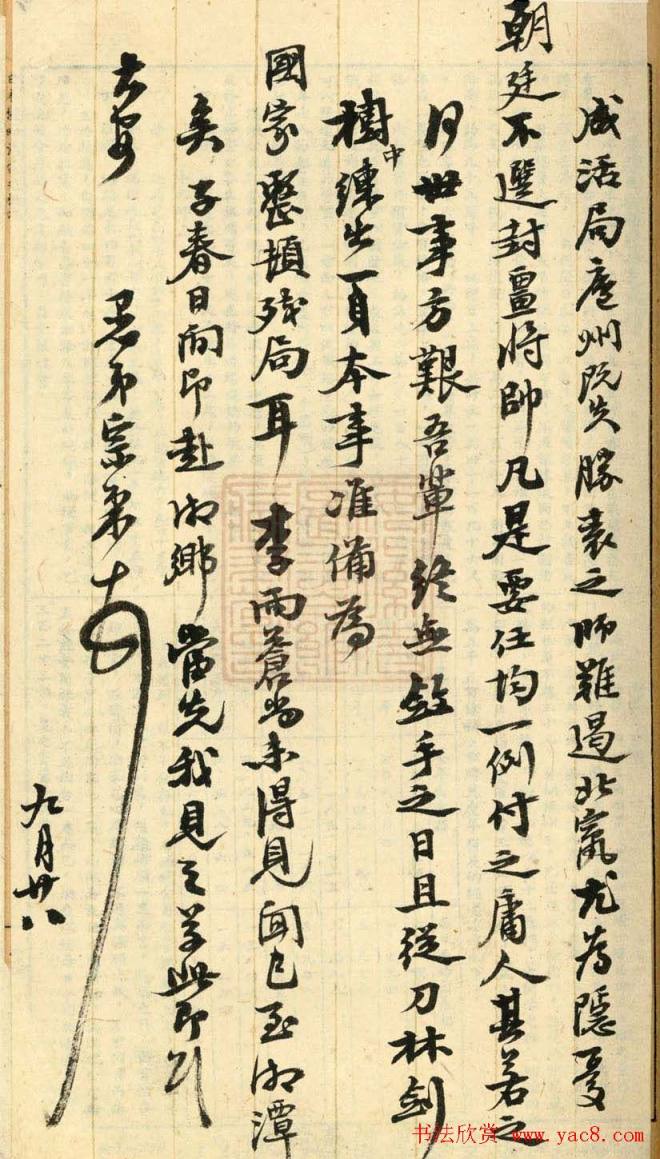 成活局廬州既失勝袁之師難遏北竄尤為隱憂
朝廷不選封疆將帥凡是要任均一例付之庸人其若之
何世事方艱吾輩終無斂手之日且從刀林劍
樹中練出一身本事准備為
國家整頓殘局耳李雨蒼尚未得見聞已至湘潭
矣子春日間即赴湘鄉當先我見之草此即頌
大安 愚弟宗棠頓首
九月廿八
书法欣赏 www.yac8.com